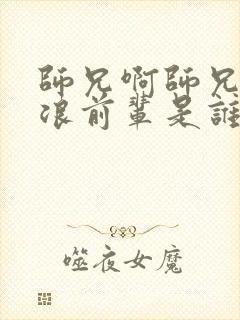 師兄啊師兄
浪前輩是誰
噬夜女魔